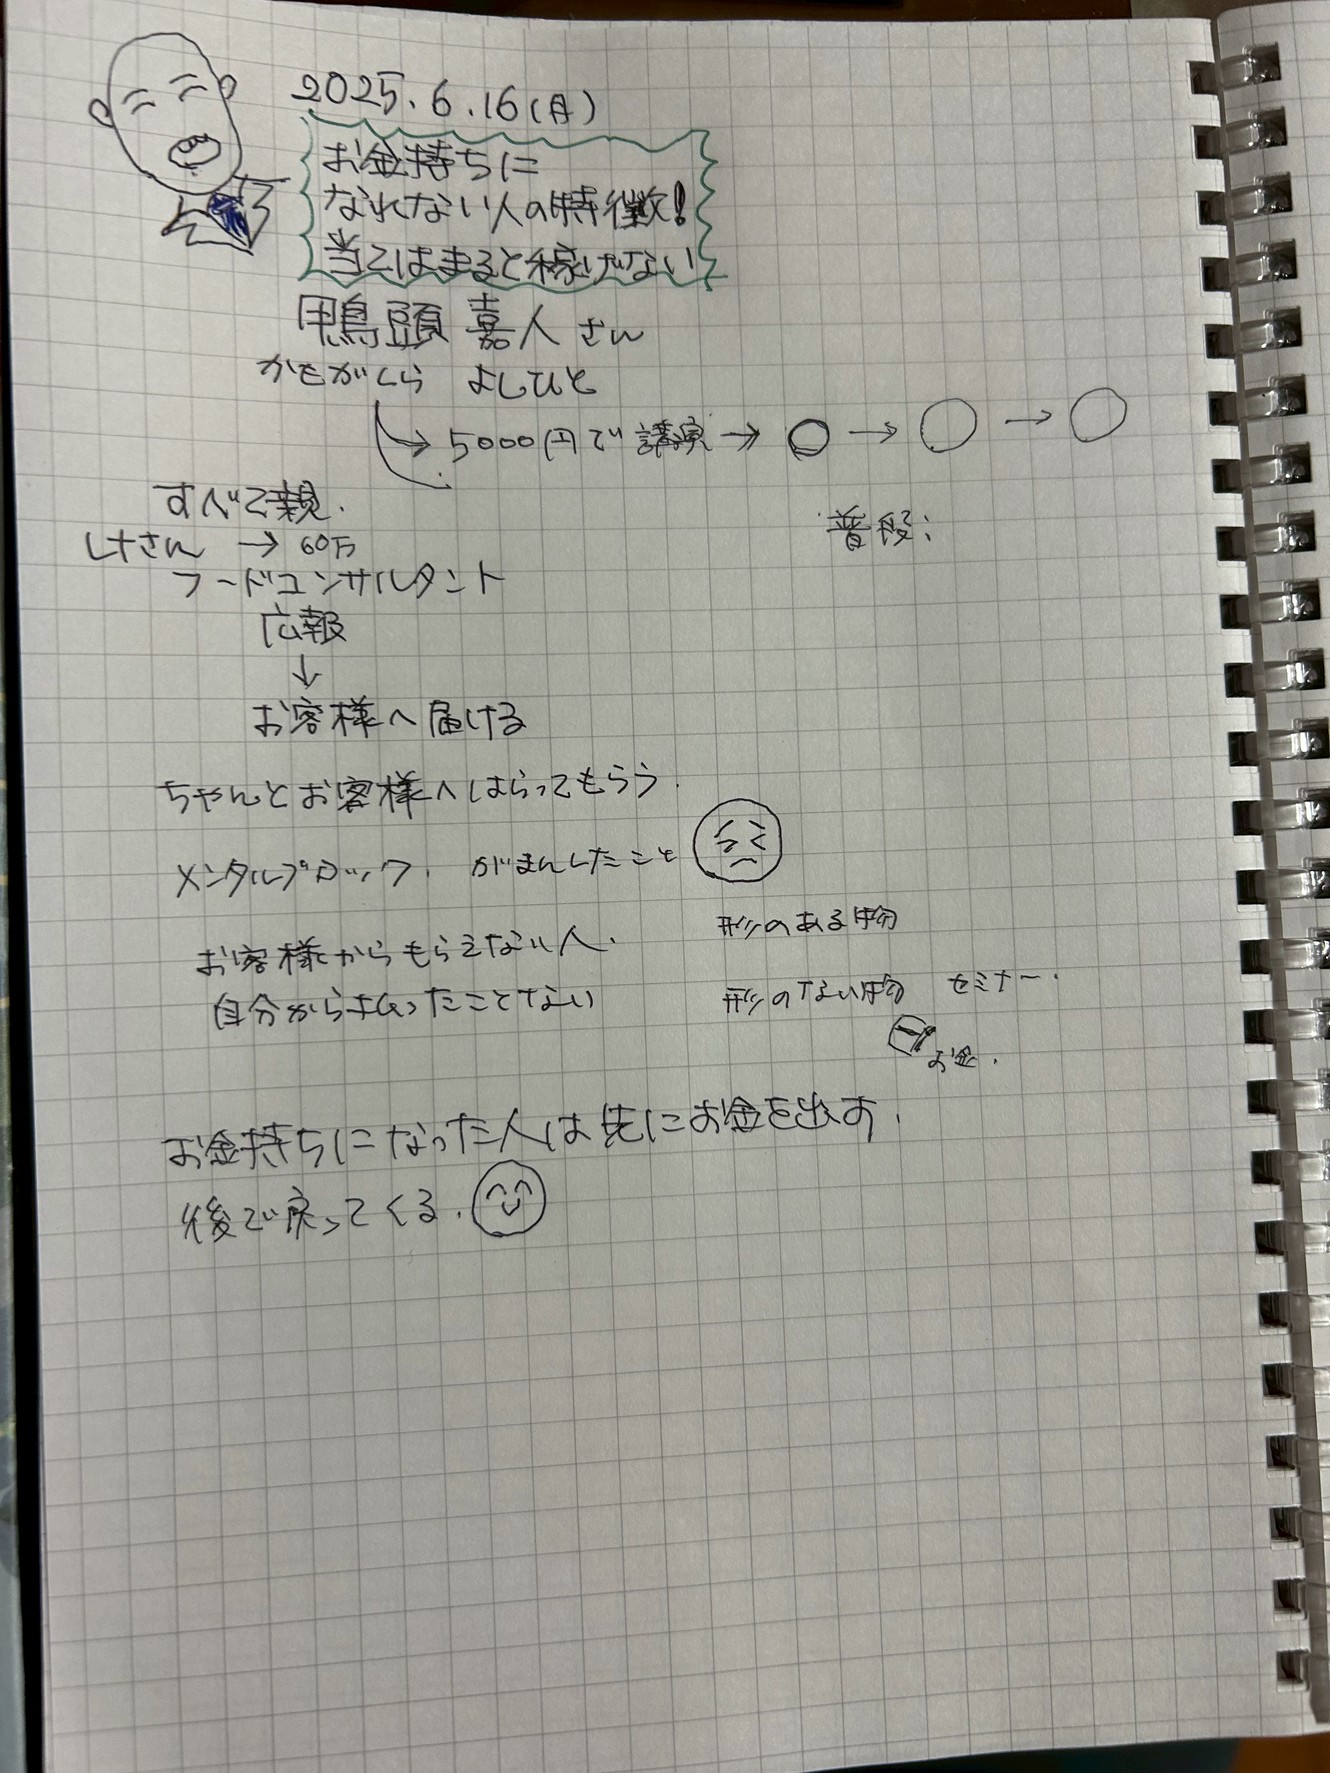 2025.6.16(月)
お金持ちに
なれない人の特徴!
当てはまると稼げない
鴨頭 嘉人さん
かもがしら よしひと
→ 5000円で講演 → ○ → ○ → ○
すべて親.
普段:
しTさん → 60万
フードコンサルタント
広報
↓
お客様へ届ける
ちゃんとお客様へはらってもらう.
メンタルブロック. がまんしたこと
お客様からもらえない人.
形のある物
自分から払ったことない
形のない物 セミナー.
お金.
お金持ちになった人は先にお金を出す.
後で戻ってくる.